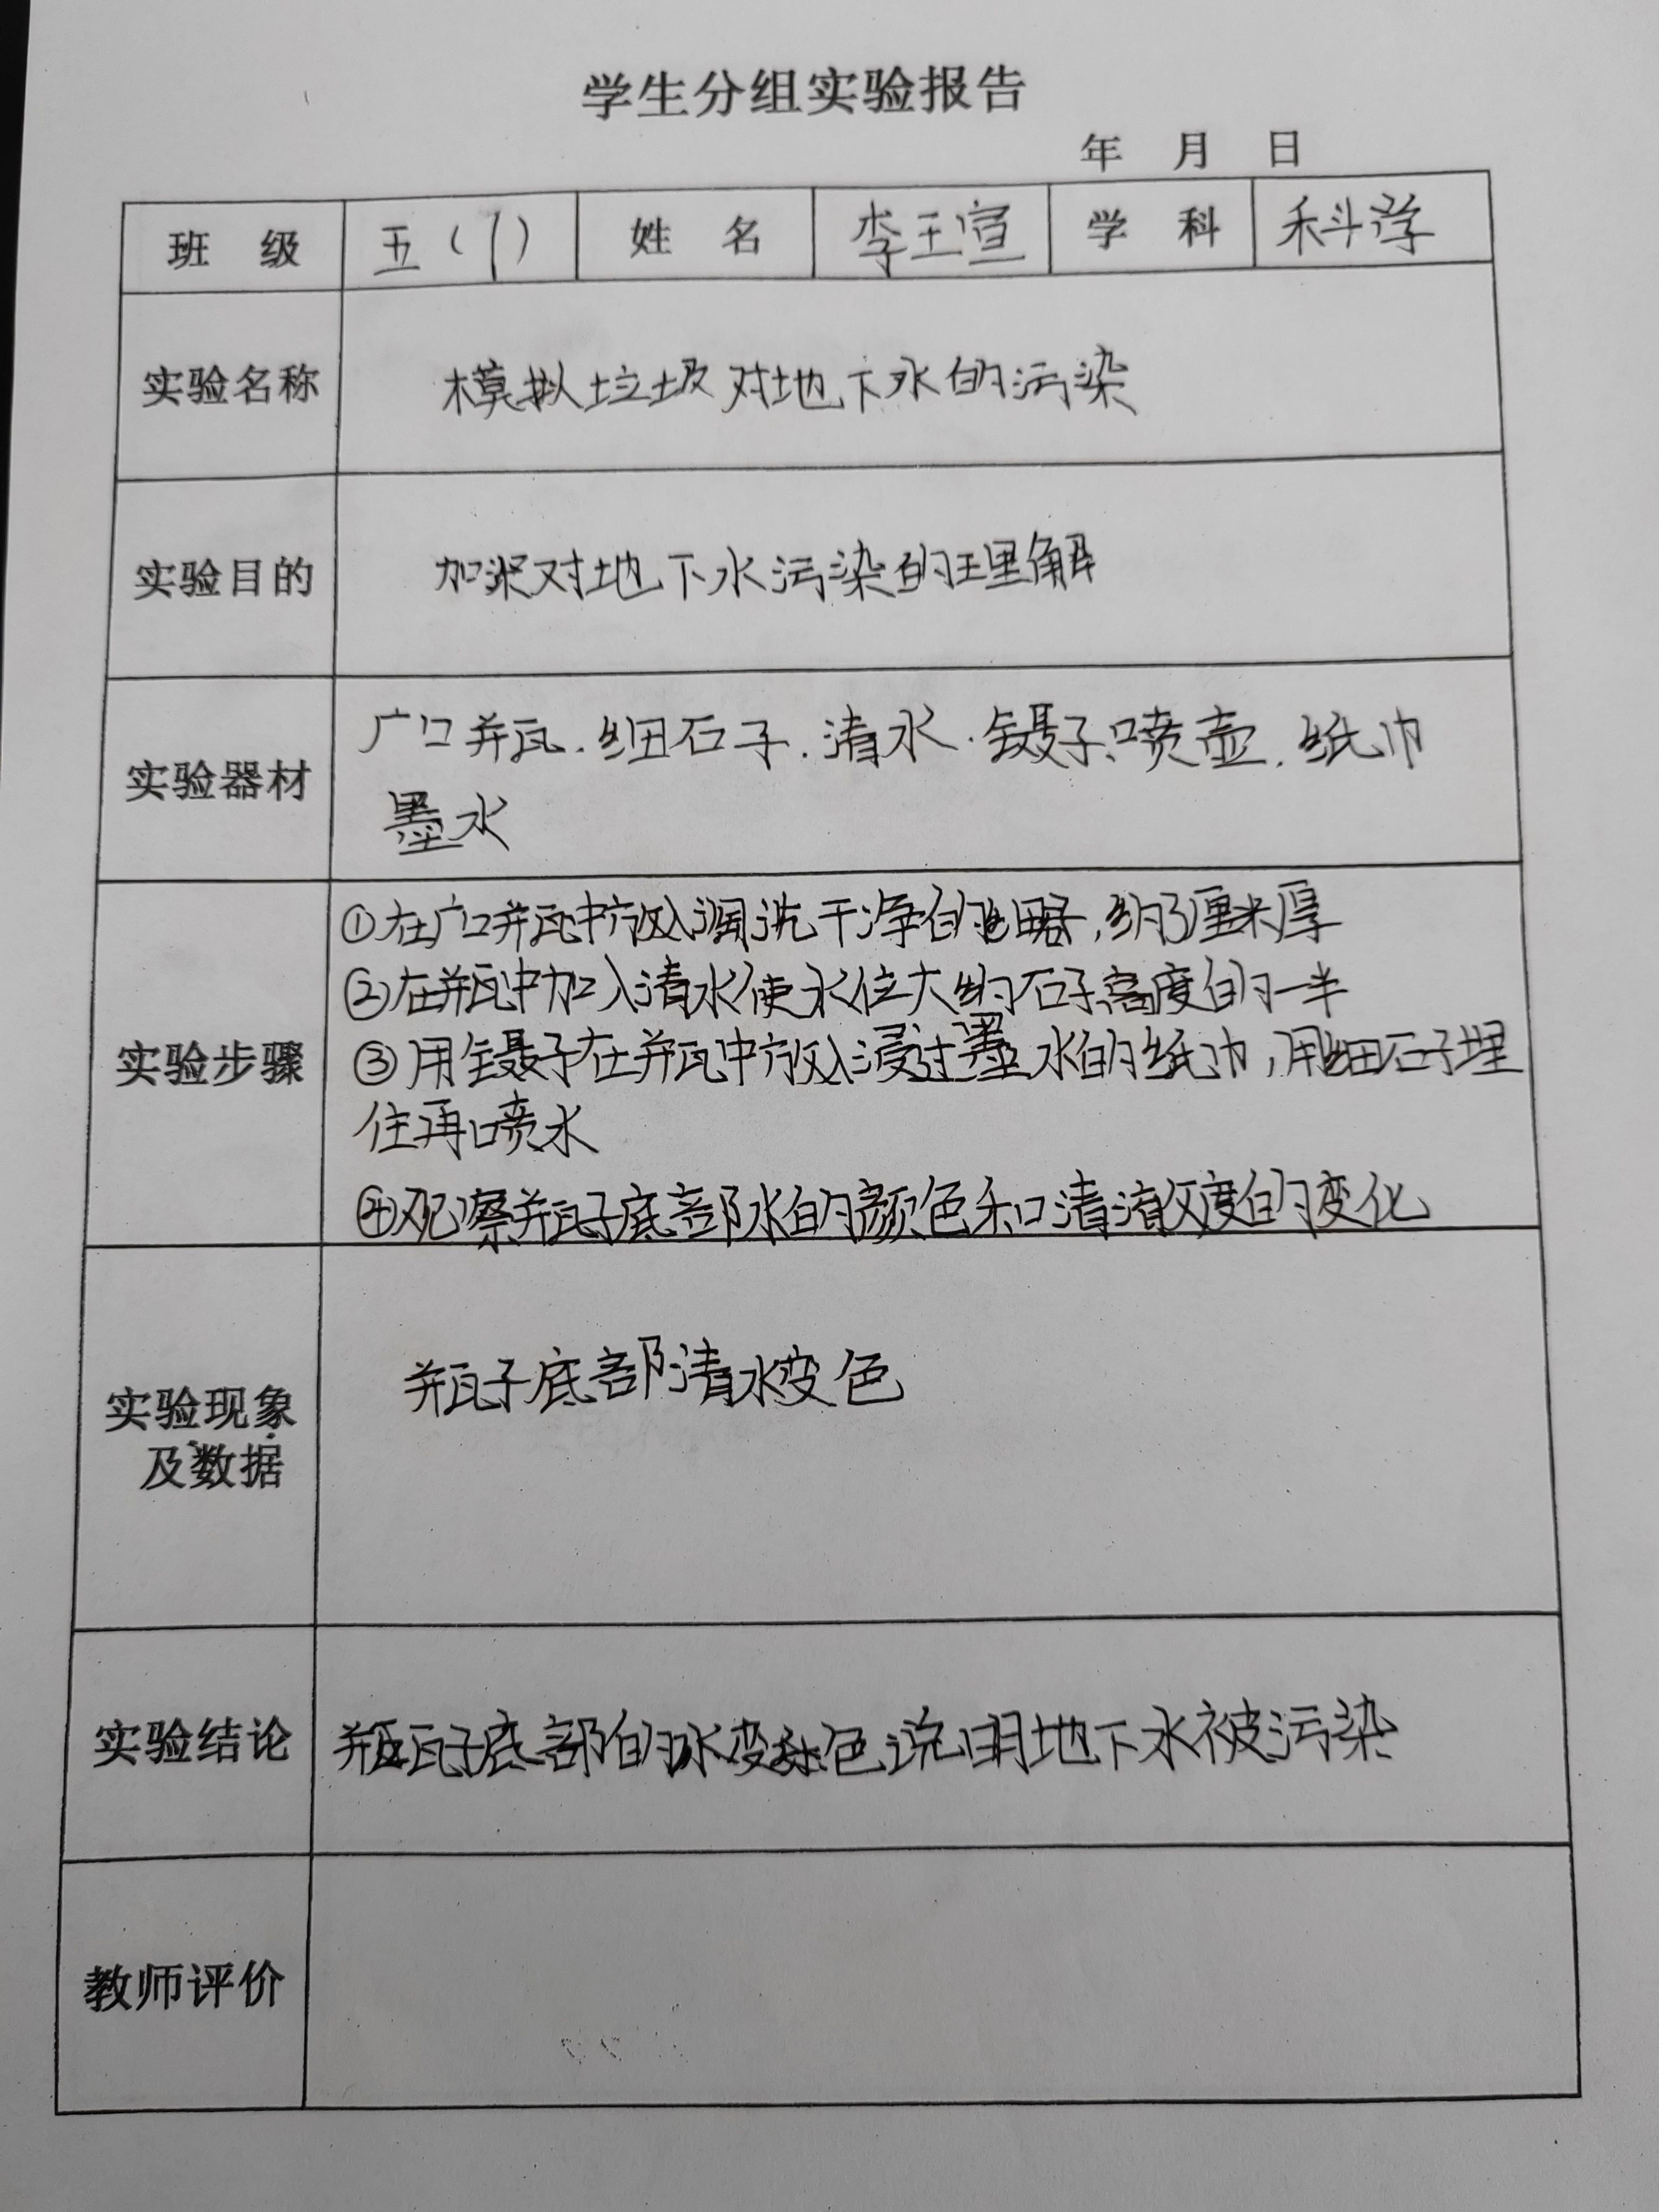 学生分组实验报告
年 月 日
班 级 五(1) 姓 名 李王宣 学 科 科学
实验名称 模拟垃圾对地下水的污染
实验目的 加深对地下水污染的理解
实验器材 广口瓶.细石子.清水.镊子、喷壶.纸巾
墨水
实验步骤 ①在广口瓶中放入润洗干净的细石子,约3厘米厚
②在瓶中加入清水使水位大约石子高度的一半
③用镊子在瓶中放入浸过墨水的纸巾,用细石子埋
住再喷水
④观察瓶子底部水的颜色和清澈度的变化
实验现象
及数据 瓶子底部清水变色
实验结论 瓶子底部的水变色说明地下水被污染
教师评价